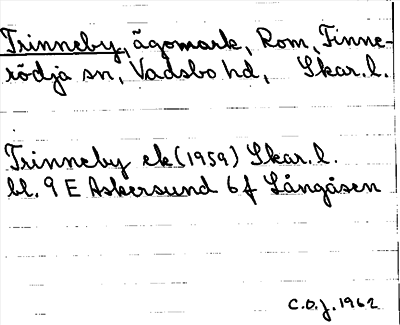 Trinneby, ägomark, Rom, Finne-
rödja sn, Vadsbo hd, Skar. l.
Trinneby ek (1959) Skar. l.
bl. 9 E Askersund 6 f Långåsen
C.O.J. 1962